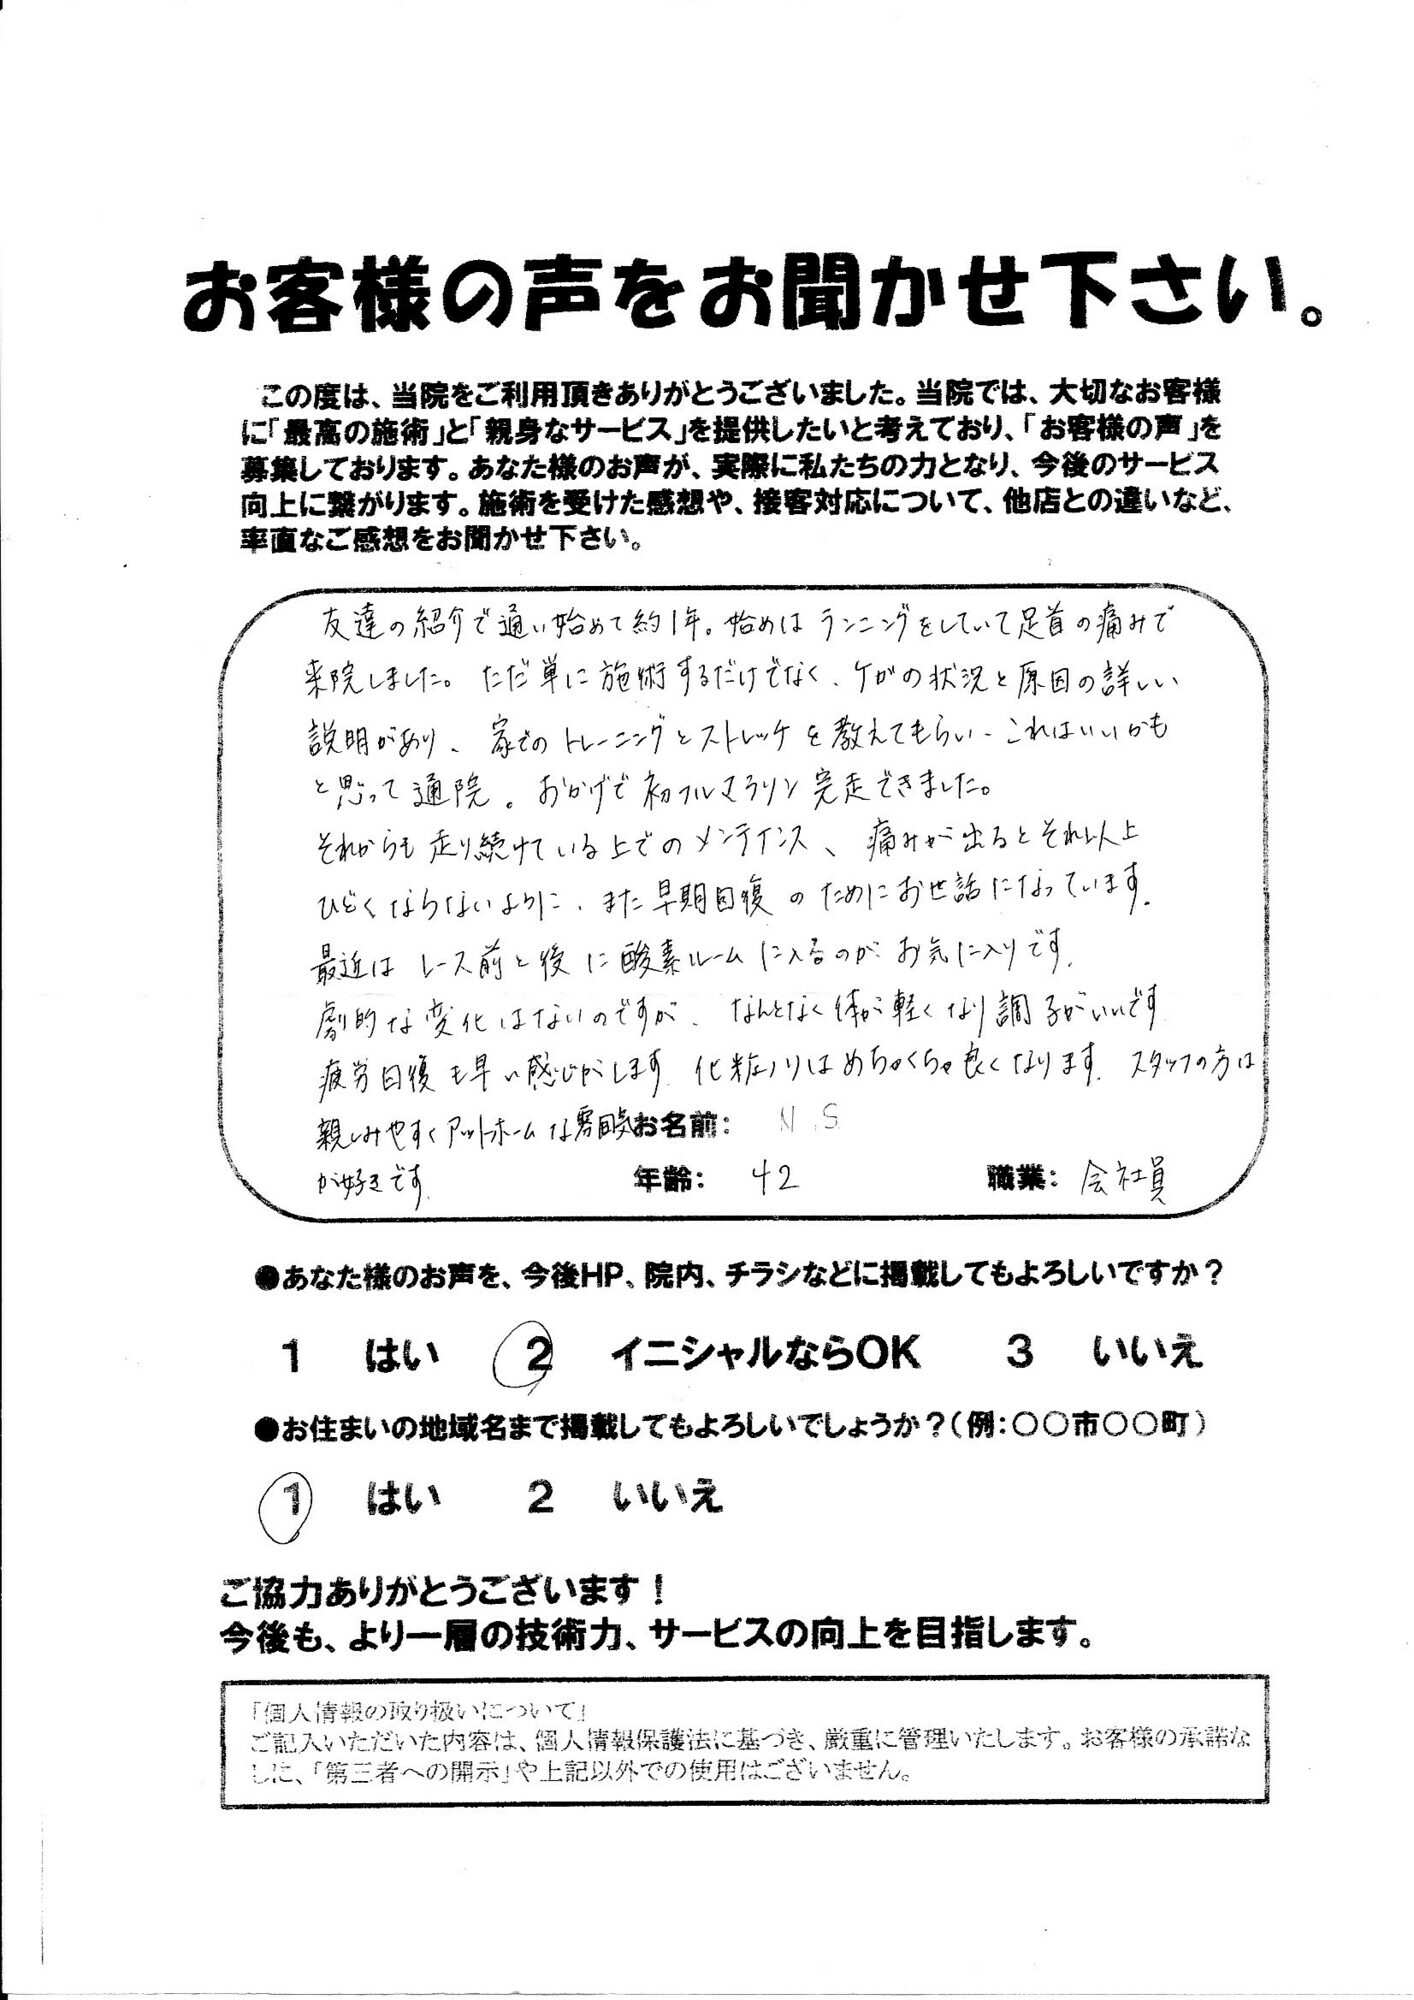 お客様の声をお聞かせ下さい。
この度は、当院をご利用頂きありがとうございました。当院では、大切なお客様
に「最高の施術」と「親身なサービス」を提供したいと考えており、「お客様の声」を
募集しております。あなた様のお声が、実際に私たちの力となり、今後のサービス
向上に繋がります。施術を受けた感想や、接客対応について、他店との違いなど、
率直なご感想をお聞かせ下さい。
友達の紹介で通い始めて約1年。始めはランニングをしていて足首の痛みで
来院しました。ただ単に施術するだけでなく、ケガの状況と原因の詳しい
説明があり、家でのトレーニングとストレッチを教えてもらい、これはいいかも
と思って通院。おかげで初フルマラソン完走できました。
それからも走り続けている上でのメンテナンス、痛みが出るとそれ以上
ひどくならないように、また早期回復のためにお世話になっています。
最近はレース前と後に酸素ルームに入るのがお気に入りです。
劇的な変化はないのですが、なんとなく体が軽くなり調子がいいです
疲労回復も早い感じがします。化粧ノリはめちゃくちゃ良くなります。スタッフの方は
親しみやすくアットホームな雰囲気
が好きです。
お名前: N.S
年齢: 42 職業: 会社員
●あなた様のお声を、今後HP、院内、チラシなどに掲載してもよろしいですか?
1 はい 2 イニシャルならOK 3 いいえ
●お住まいの地域名まで掲載してもよろしいでしょうか?(例:○○市○○町)
1 はい 2 いいえ
ご協力ありがとうございます!
今後も、より一層の技術力、サービスの向上を目指します。
「個人情報の取り扱いについて」
ご記入いただいた内容は、個人情報保護法に基づき、厳重に管理いたします。お客様の承諾な
しに、「第三者への開示」や上記以外での使用はございません。